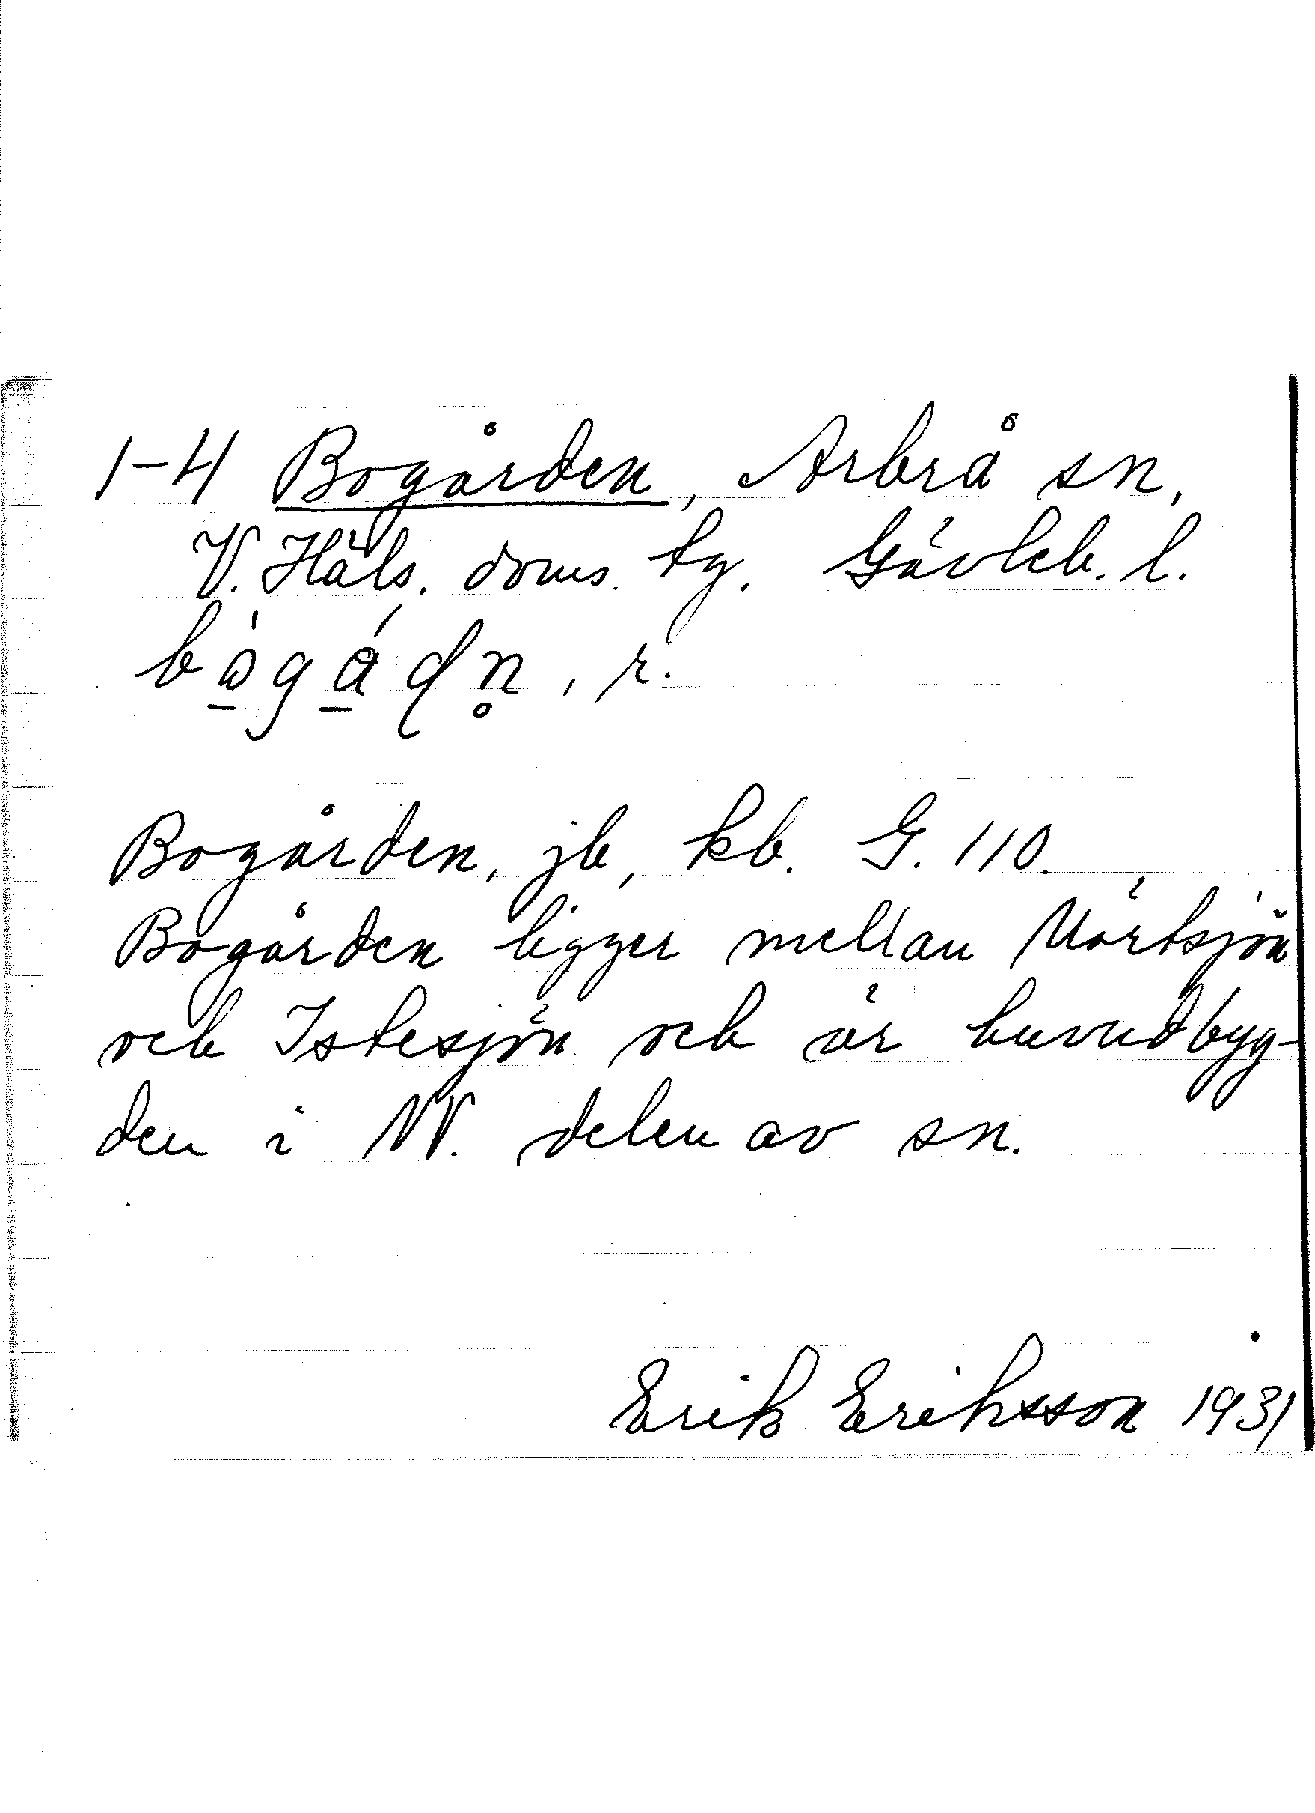 1-4 Bogården, Arbrå sn,
V. Häls. doms. tg. Gävleb. l.
Bogården, jb, kb. G. 110.
Bogården ligger mellan Mörtsjön
och Istesjön och är huvudbyg-
den i NV. delen av sn.
Erik Eriksson 1931